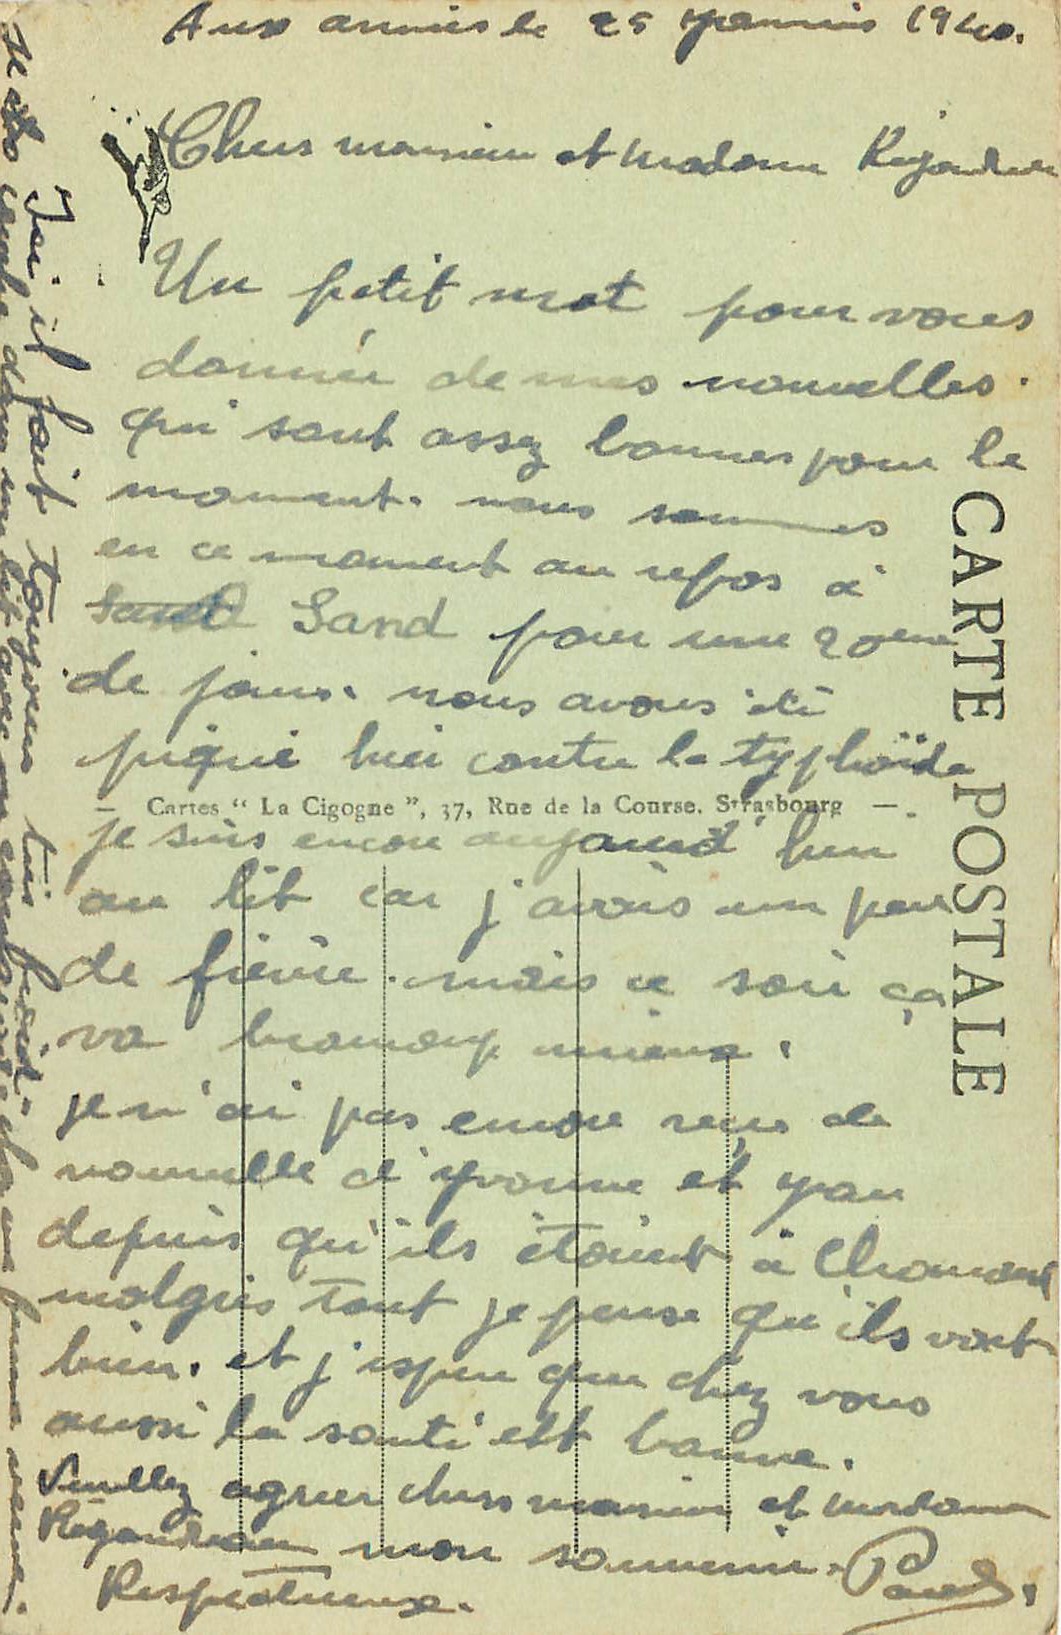 Aux armées le 25 janvier 1940.
Chers monsieur et madame
Un petit mot pour vous
donnée de mes nouvelles.
qui sont assez bonnes pour le
moment. nous sommes
en ce moment au repos à
Sand pour une 20ene
de jours. nous avons été
piqué hier contre la typhoïde
— Cartes “ La Cigogne ”, 37, Rue de la Course. Strasbourg —
je suis encore aujourd'hui
au lit car j'avais un peu
de fièvre. mais ce soir ça
va beaucoup mieux.
je n'ai pas encore reçu de
nouvelle d'yvonne et
depuis qu'ils étaient à
malgrés tout je pense qu'ils vont
bien. et j'espère que chez vous
aussi la santé est bonne.
Veuillez agréer chers monsieur et madame
mon souvenir.
Respectueux.
CARTE POSTALE
Ici il fait toujours très froid.
couche dans un lit avec